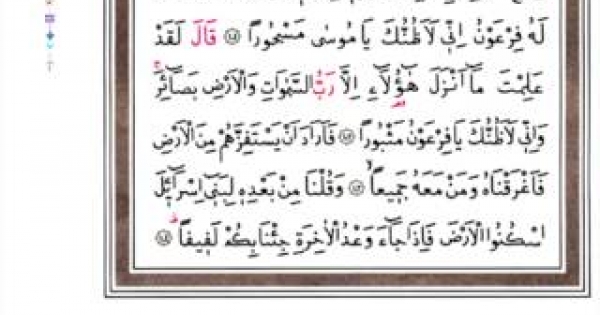 لَهُ فِرْعَوْنُ اِنّ۪ي لَاَظُنُّكَ يَا مُوسٰى مَسْحُوراً ۝ قَالَ لَقَدْ
عَلِمْتَ مَٓا اَنْزَلَ هٰٓؤُ۬لَٓاءِ اِلَّا رَبُّ السَّمٰوَاتِ وَالْاَرْضِ بَصَٓائِرَۚ
وَاِنّ۪ي لَاَظُنُّكَ يَا فِرْعَوْنُ مَثْبُوراً ۝ فَاَرَادَ اَنْ يَسْتَفِزَّهُمْ مِنَ الْاَرْضِ
فَاَغْرَقْنَاهُ وَمَنْ مَعَهُ جَم۪يعاًۙ ۝ وَقُلْنَا مِنْ بَعْدِه۪ لِبَن۪ٓي اِسْرَٓائ۪لَ
اسْكُنُوا الْاَرْضَ فَاِذَا جَٓاءَ وَعْدُ الْاٰخِرَةِ جِئْنَا بِكُمْ لَف۪يفاًۜ ۝